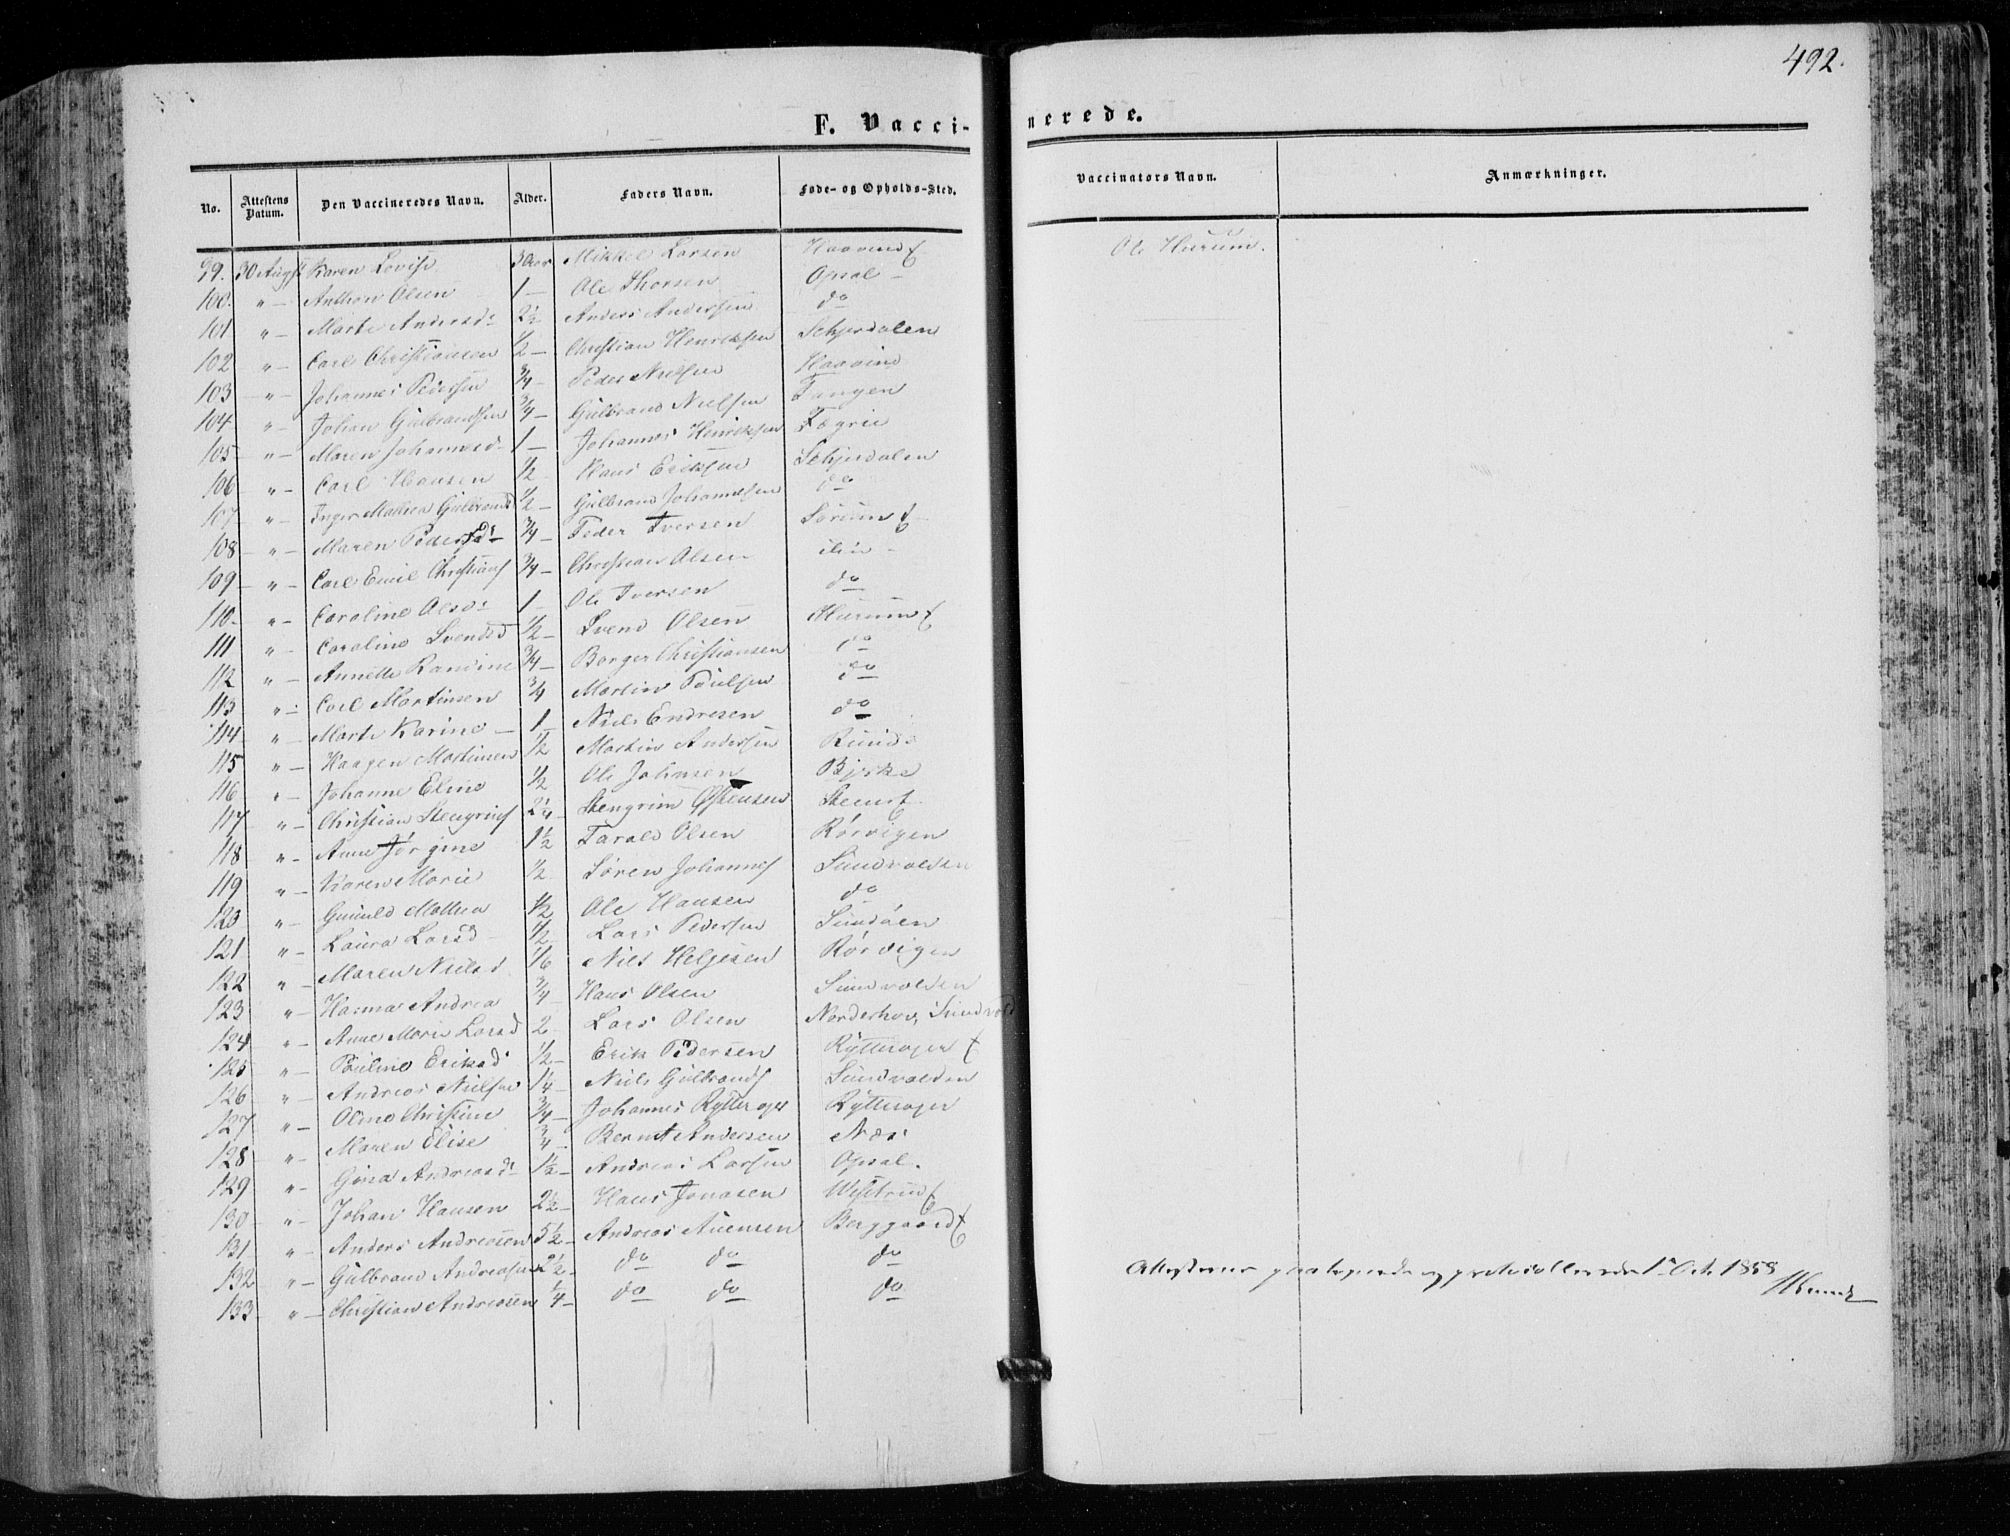 492.
F. Vaccinerede.
No. Attestens Datum. Den Vaccineredes Navn. Alder. Faders Navn. Føde- og Opholds-Sted. Vaccinators Navn. Anmærkninger.
99. 30 Augst Karen Lovise 3 Aar Mikkel Larsen Ole Hurum.
100. " Anthon Olsen 1 — Ole Thorsen Opsal —
101 " — Marte Andersd: 2½ Anders Andersen do
102 " — Carl Christiansen ½ — Christian Henriksen Schjerdalen
103 " — Johannes Pedersen ¾ — Peder Nielsen Haavind
104 " — Johan Gulbrandsen ¾ — Gulbrand Nielsen Tangen
105 " — Maren Johannesd 1 — Johannes Henriksen
106 " — Carl Hansen ½ Hans Eriksen Schjerdalen
107 " — Inger Mathea Gulbrandsd ½ — Gulbrand Johannesen do
108 " — Maren Pedersd: ¾ — Peder Iversen
109 " — Carl Emil Christians ¾ — Christian Olsen
110 " — Caroline Olsd: 1 — Ole Iversen do
111 " — Caroline Svendsd ½ — Svend Olsen
112 " — Annette Randine ¾ — Borger Christiansen do
113 " — Carl Martinsen ¾ Martin Poulsen do
114 " — Marte Karine — 1 — Niels Endresen do
115 " — Haagen Martinsen ½ Martin Andersen
116 " — Johanne Eline ½ Ole Johnsen Bjerke
117 " — Christian Stengrims 2¼ — Stengrim Østensen
118 " — Anne Jørgine 1½ Tarald Olsen Rørvigen
119 " — Karen Marie ½ Søren Johannes Sundvolden
123 " — Gunild Mathea ½ Ole Hansen do
121 " — Laura Larsd ½ Lars Pedersen Sundøen
122 " — Maren Nielsd ⅙ Niels Helgesen Rørvigen
123 " — Hanna Andrea ¾ Hans Olsen Sundvolden
124 " — Anne Marie Larsd 2 Lars Olsen Norderhov, Sundvold
125 " — Pouline Eriksd ½ — Erik Pedersen Rytterager
126 " — Andreas Nielsen 1¼ — Niels Gulbrands Sundvolden
127 " — Oline Christine ¾ — Johannes Rytterager Rytterager
128 " — Maren Elise ¾ — Bernt Andersen Næs
129 " — Gina Andreasd: 1½ — Andreas Larsen Opsal.
130 " — Johan Hansen 2½ — Hans Jonasen
131 " — Anders Andreasen 5½ — Andreas
132 " — Gulbrand Andreasen 2½ — do do do
133 " — Christian Andreasen ¼ — do do do
Attesterne og protocollerede 1ste Oct. 1858